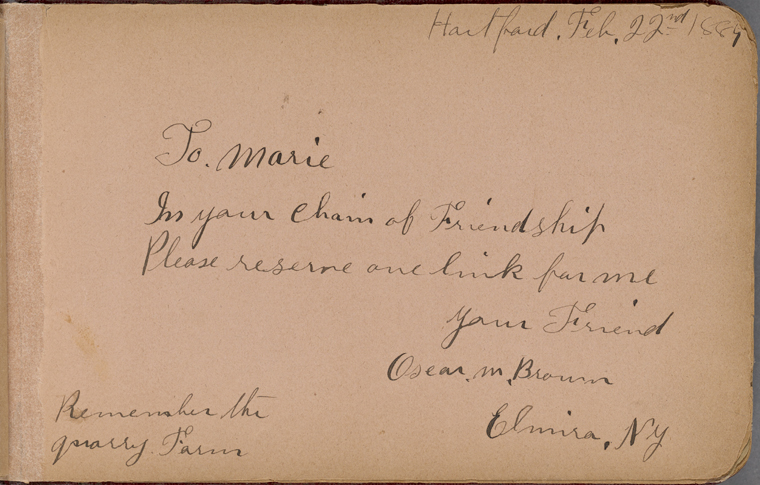 Hartford, Feb, 22nd 1889
To. Marie
In your Chain of Friendship
Please reserve one link for me
Your Friend
Oscar. M. Brown
Elmira, NY
Remember the
quarry Farm